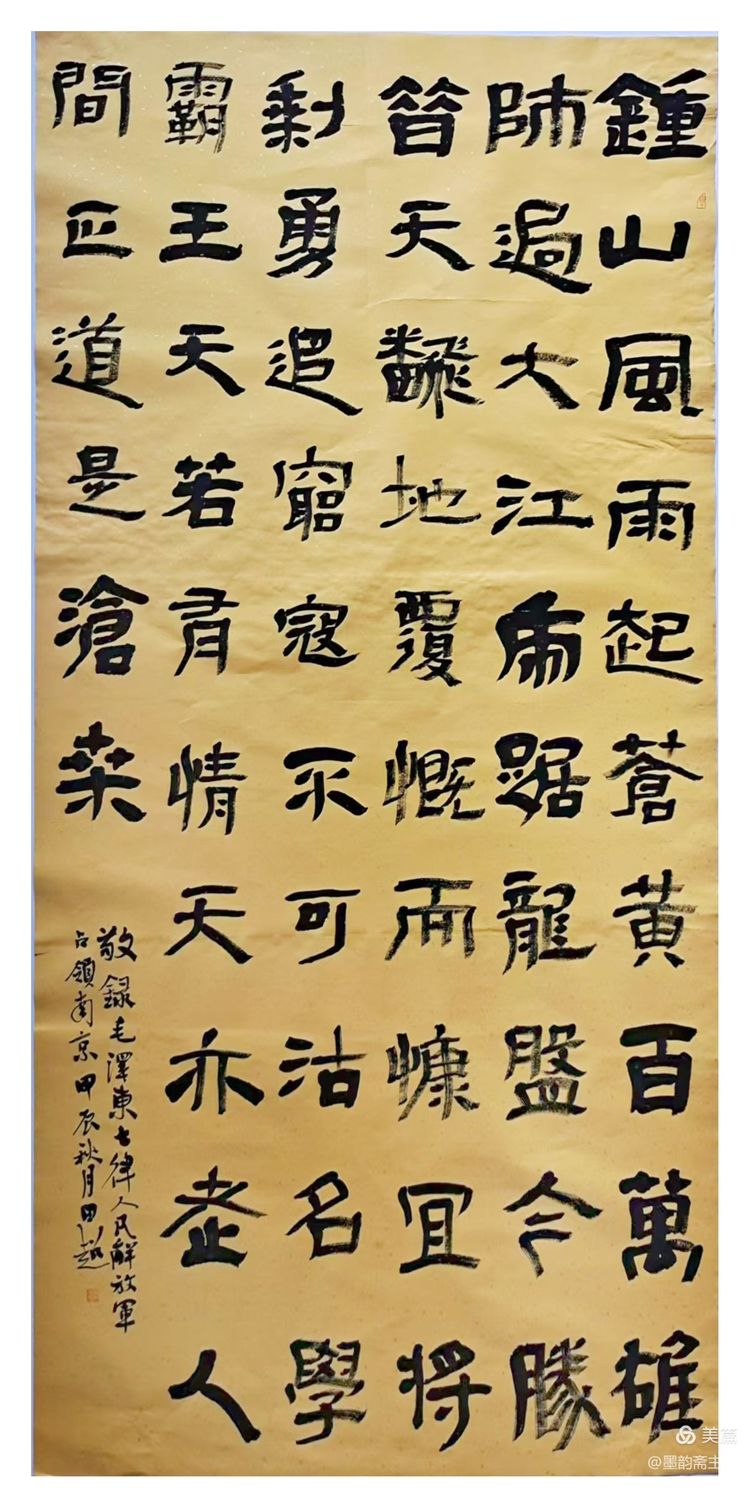 鍾山風雨起蒼黃百萬雄
師過大江虎踞龍盤今勝
昔天飜地覆慨而慷宜將
剩勇追窮寇不可沽名學
霸王天若有情天亦老人
間正道是滄桒
敬録毛澤東七律人民解放軍
占領南京甲辰秋月田超
美篇
@墨韵斋主